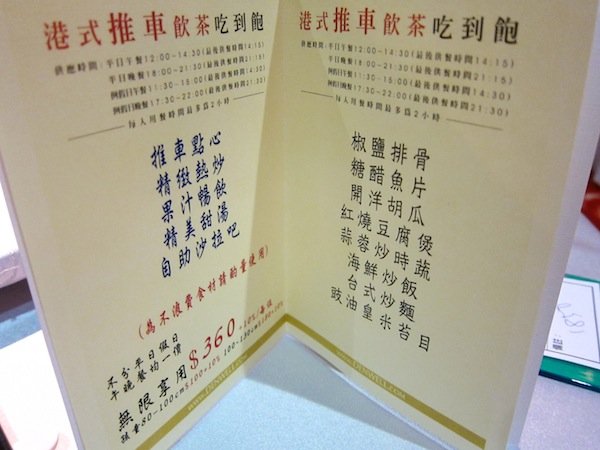 港式推車飲茶吃到飽
供應時間:平日午餐12:00~14:30(最後供餐時間14:15)
平日晚餐18:00~21:30(最後供餐時間21:15)
例假日午餐11:30~15:00(最後供餐時間14:30)
例假日晚餐17:30~22:00(最後供餐時間21:30)
每人用餐時間最多為2小時
推車點心
精緻熱炒
果汁暢飲
精美甜湯
自助沙拉吧
(為不浪費食材請酌量使用)
不分平日假日
午晚餐均一價
無限享用$360+10%/每位
孩童80~100cm$100+10% 100~130cm$180+10%
WWW.DENWELL.COM
港式推車飲茶吃到飽
供應時間:平日午餐12:00~14:30(最後供餐時間14:15)
平日晚餐18:00~21:30(最後供餐時間21:15)
例假日午餐11:30~15:00(最後供餐時間14:30)
例假日晚餐17:30~22:00(最後供餐時間21:30)
每人用餐時間最多為2小時
椒鹽排骨
糖醋魚片
開洋胡瓜
紅燒豆腐煲
蒜蓉炒時蔬
海鮮炒飯
台式炒麵
豉油皇米苔目
WWW.DENWELL.COM